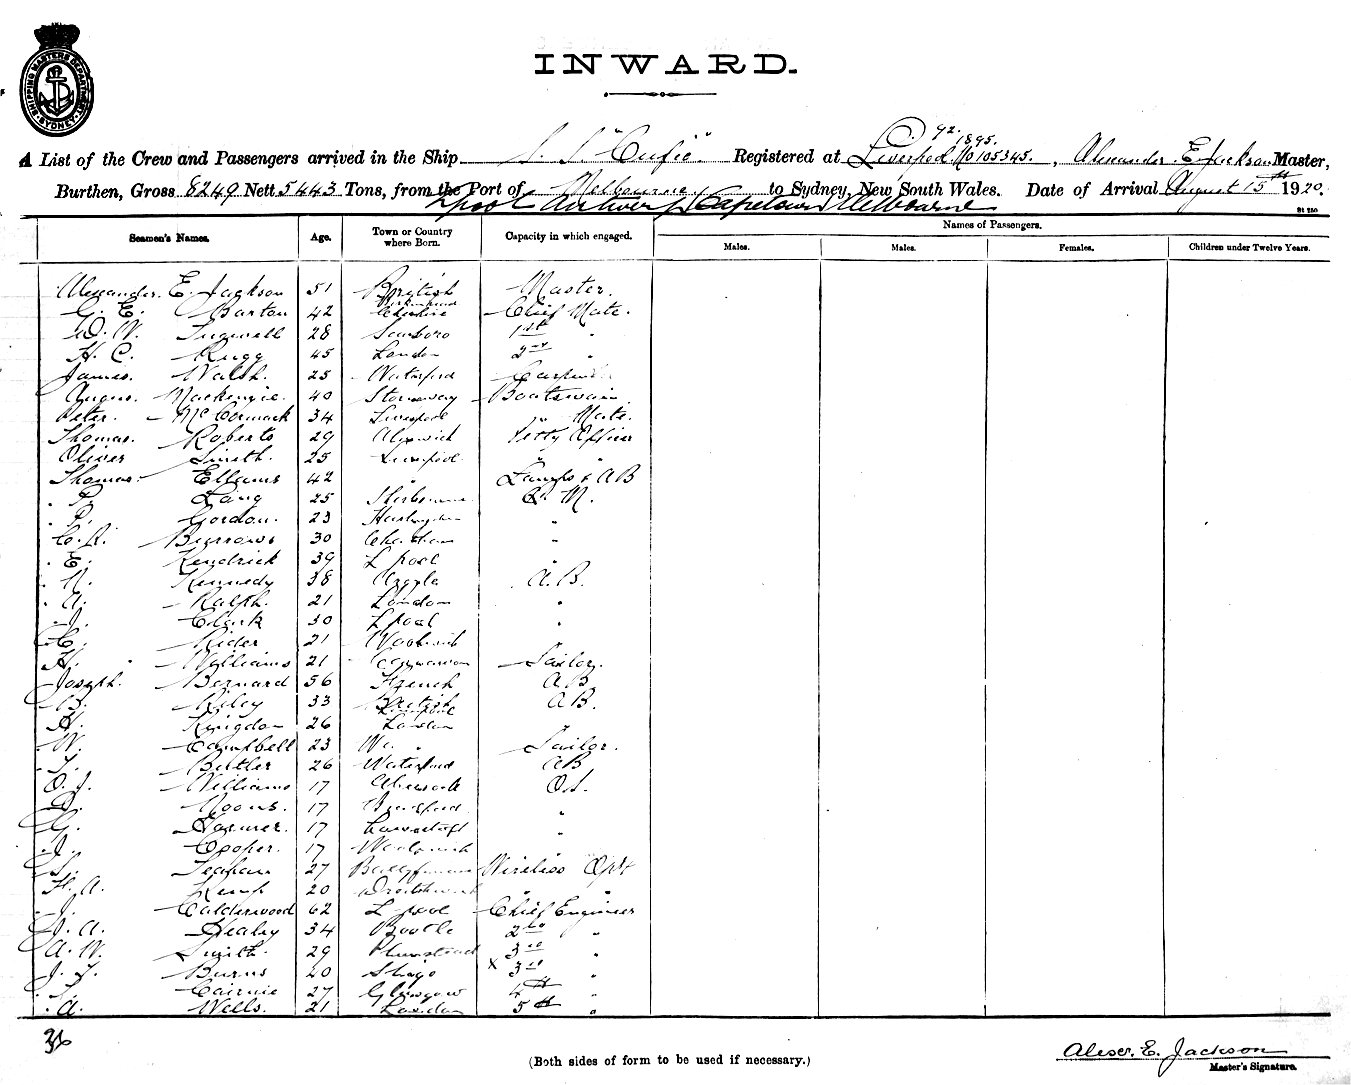 SHIPPING MASTERS DEPARTMENT SYDNEY
INWARD.
92.
1895.
A List of the Crew and Passengers arrived in the Ship S. S. "Cufic" Registered at Liverpool No 105345. , Alexander E. Jackson Master,
Burthen, Gross 8249 Nett 5443 Tons, from the Port of Melbourne to Sydney, New South Wales. Date of Arrival August 15th 1920.
Lpool Antwerp Capetown Melbourne
Seamen's Names. Age. Town or Country where Born. Capacity in which engaged. Names of Passengers.
Males. Males. Females. Children under Twelve Years.
Alexander E. Jackson 51 British Master.
G. E. Barton 42 Birkenhead Cheshire Chief Mate.
D. W. 28 Scarboro 1st "
H. C. Rugg 45 London 2nd "
James. Walsh. 25 Waterford
Angus. Mackenzie. 40 Stornoway Boatswain
Peter. McCormack 34 Liverpool " Mate.
Thomas. Roberts 29 Petty Officer
Oliver Smith. 25 Liverpool " "
Thomas. Ellams 42 " Lamps & AB
P. Lang 25 Q. M.
P. Gordon. 23 "
C. R. Burrows 30 "
E. Kendrick 39 L pool "
N. Kennedy 38 Argyle A. B.
A. Ralph. 21 London "
J. Clark 30 L pool "
C. Rider 21 Woolwich "
H. Williams 21 Sailor.
Joseph. Bernard 56 French AB
B. Riley 33 British Liverpool AB.
H. Kingdon 26 London "
W. Campbell 23 " Sailor.
T. Butler 26 Waterford AB
O. J. Williams 17 O.S.
17 "
G. 17 Lowestoft "
J. Cooper. 17 Woolwich "
27 Wireless Opr
H. A. Kemp 20 " "
J. Calderwood 62 L pool Chief Engineer
J. A. Healey 34 Bootle 2nd "
A. W. Smith. 29 Plumstead 3rd "
J. T. Burns 20 Sligo x 3rd "
T. Cairnie 27 Glasgow 4th "
A. Wells. 21 London 5th "
36
(Both sides of form to be used if necessary.)
Alexr. E. Jackson
Master's Signature.